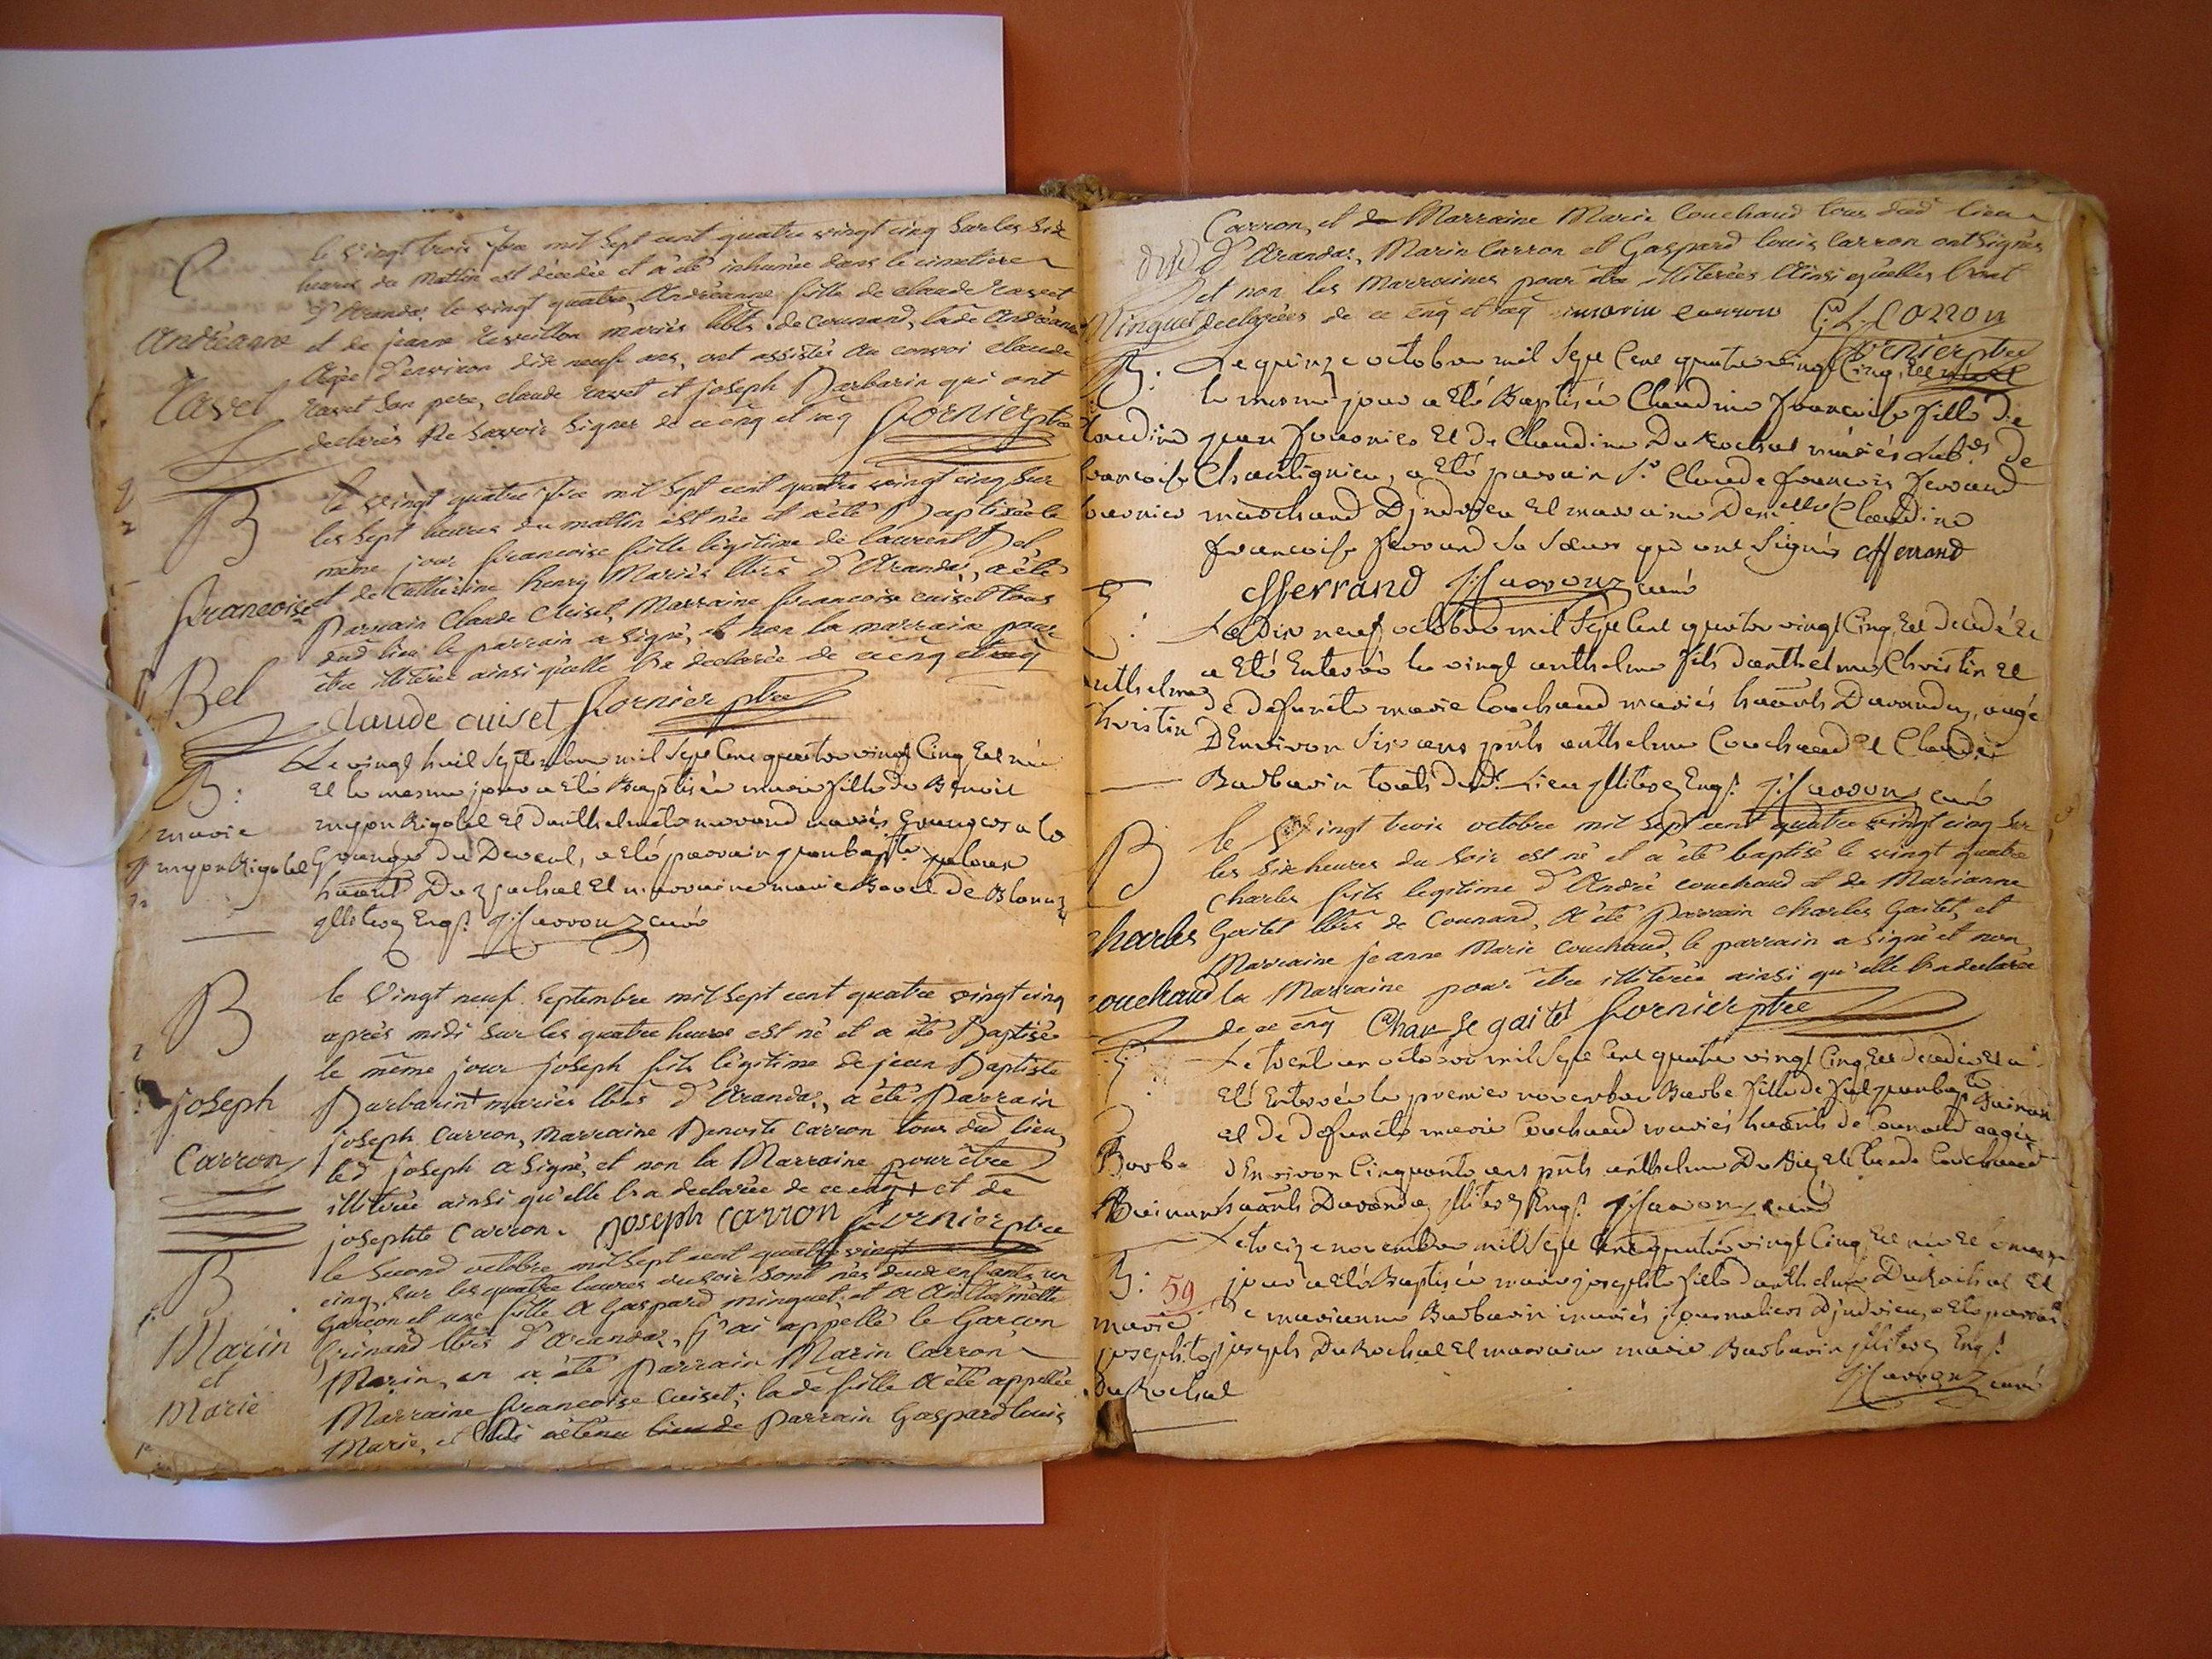 le vingt trois 7bre mil sept cent quatre vingt cinq sur les six
heures du mattin est décedée et a été inhumée dans le cimetiere
d'Arandas le vingt quatre, Andréanne fille de claude ravet
Andréanne
et de jeanne mariés hbts de counand, lade Andréanne
Agée d'environ dix neuf ans, ont assistés au convoi claude
Ravet
ravet son pere, claude ravet et joseph Barbarin qui ont
declarés ne savoir signer de ce enq et req fornier ptre
B
le vingt quatre 7bre mil sept cent quatre vingt cinq sur
les sept heures du mattin est née et a été Baptisée le
même jour francoise fille légitime de laurent Bel
francoise
et de Catherine henry Mariés hbts d'Arandas, a été
Parrain Claude Cuiset, Marraine francoise cuiset tous
dud lieu le parrain a signé, et non la marraine pour
Bel
être illiterée ainsi qu'elle l'a declarée de ce enq et req
Claude cuiset fornier ptre
Le vingt huit septembre mil sept cent quatre vingt Cinq Est née
B:
Et le mesme jour a Eté Baptisée marie fille de Benoit
marie
mypon Rigolet Et danthelmette morand mariés Grangers a la
mypon Rigolet
Grange du Devent, a Eté parrain jean bapte
habitt et marraine marie Ravet de
jlliterez Enqs curé
B
le Vingt neuf Septembre mil sept cent quatre vingt cinq
après midi sur les quatre heures est né et a été Baptisé
le même jour joseph fils légitime de jean Baptiste
joseph
Barbarin + mariés hbts d'Arandas, a été Parrain
joseph Carron, Marraine Benoite Carron tous dud lieu,
Carron
led joseph a signé, et non la Marraine pour être
illiterée ainsi qu'elle l'a declarée de ce enq + et de
josephte Carron. joseph carron fornier ptre
B
le second octobre mil sept cent quatre vingt
cinq, sur les quatre heures du soir sont nés deux enfants un
Garcon et une fille a Gaspard minguet, et a
Marin
Grinand hbts d'Arandas, j'ai appellé le Garçon
et
Marin, en a été Parrain Marin Carron
Marie
Marraine francoise Cuiset; lade fille a été appellée
Marie, et lui a tenu lieu de Parrain Gaspard louis
Carron, et de Marraine Marie Couchaud tous dud lieu
d'Arandas, Marin Carron et Gaspard louis Carron ont signés
et non les Marraines pour être illiterées Ainsi qu'elles l'ont
Minguet
declarées de ce enq et req marin carron G L Carron
fornier ptre
B:
Le quinze octobre mil sept cent quatre vingt Cinq, Est née Et
le mesme jour a Eté Baptisée Claudine francoise fille de
Claudine
jean Et de Claudine Du Rochat mariés habts de
francoise
Chantignieu, a Eté parrain Sr Claude francois ferrand
marchand Djndrieu Et marraine Demelle Claudine
francoise ferrand sa soeur qui ont signés cfferrand
Cfferrand curé
Le Dix neuf octobre mil sept cent quatre vingt Cinq, Est decedé Et
a Eté Enterré le vingt anthelme fils danthelme Christin Et
anthelme
de defuncte marie Couchaud mariés habitants Darandaz, aagé
Christin
DEnviron six ans pnts anthelme Couchaud Et Claude
Barbarin touts dudt Lieu jlliterez Enqs curé
B
le vingt trois octobre mil sept cent quatre vingt cinq sur
les six heures du soir est né et a été baptisé le vingt quatre
Charles fils legitime d'André couchaud et de Marianne
Charles
Gaitet hbts de Counand, A été Parrain charles Gaitet, et
Marraine jeanne Marie Couchaud, le parrain a signé et non
couchaud
la Marraine pour être illiterée ainsi qu'elle l'a declarée
de ce enq Charle gaitet fornier ptre
Le trent un octobre mil sept cent quatre vingt Cinq Est decedée Et a
Eté Enterrée le premier novembre Barbe fille de jean bapte
et de defuncte marie Couchaud mariés habitants de Counand aagée
Barbe
dEnviron Cinquante ans pnts anthelme Et Claude Couchaud
habitants Darandaz jlliterez Enqs curé
Le treize novembre mil sept cent quatre vingt Cinq, Est née Et le mesme
B: 59
jour a Eté Baptisée marie josephte fille danthelme Du Rochat Et
marie
De marianne Barbarin mariés journaliers Djndrieu, a Eté parrain
josephte
joseph Du Rochat Et marraine marie Barbarin jlliterez Enqs
du Rochat
curé